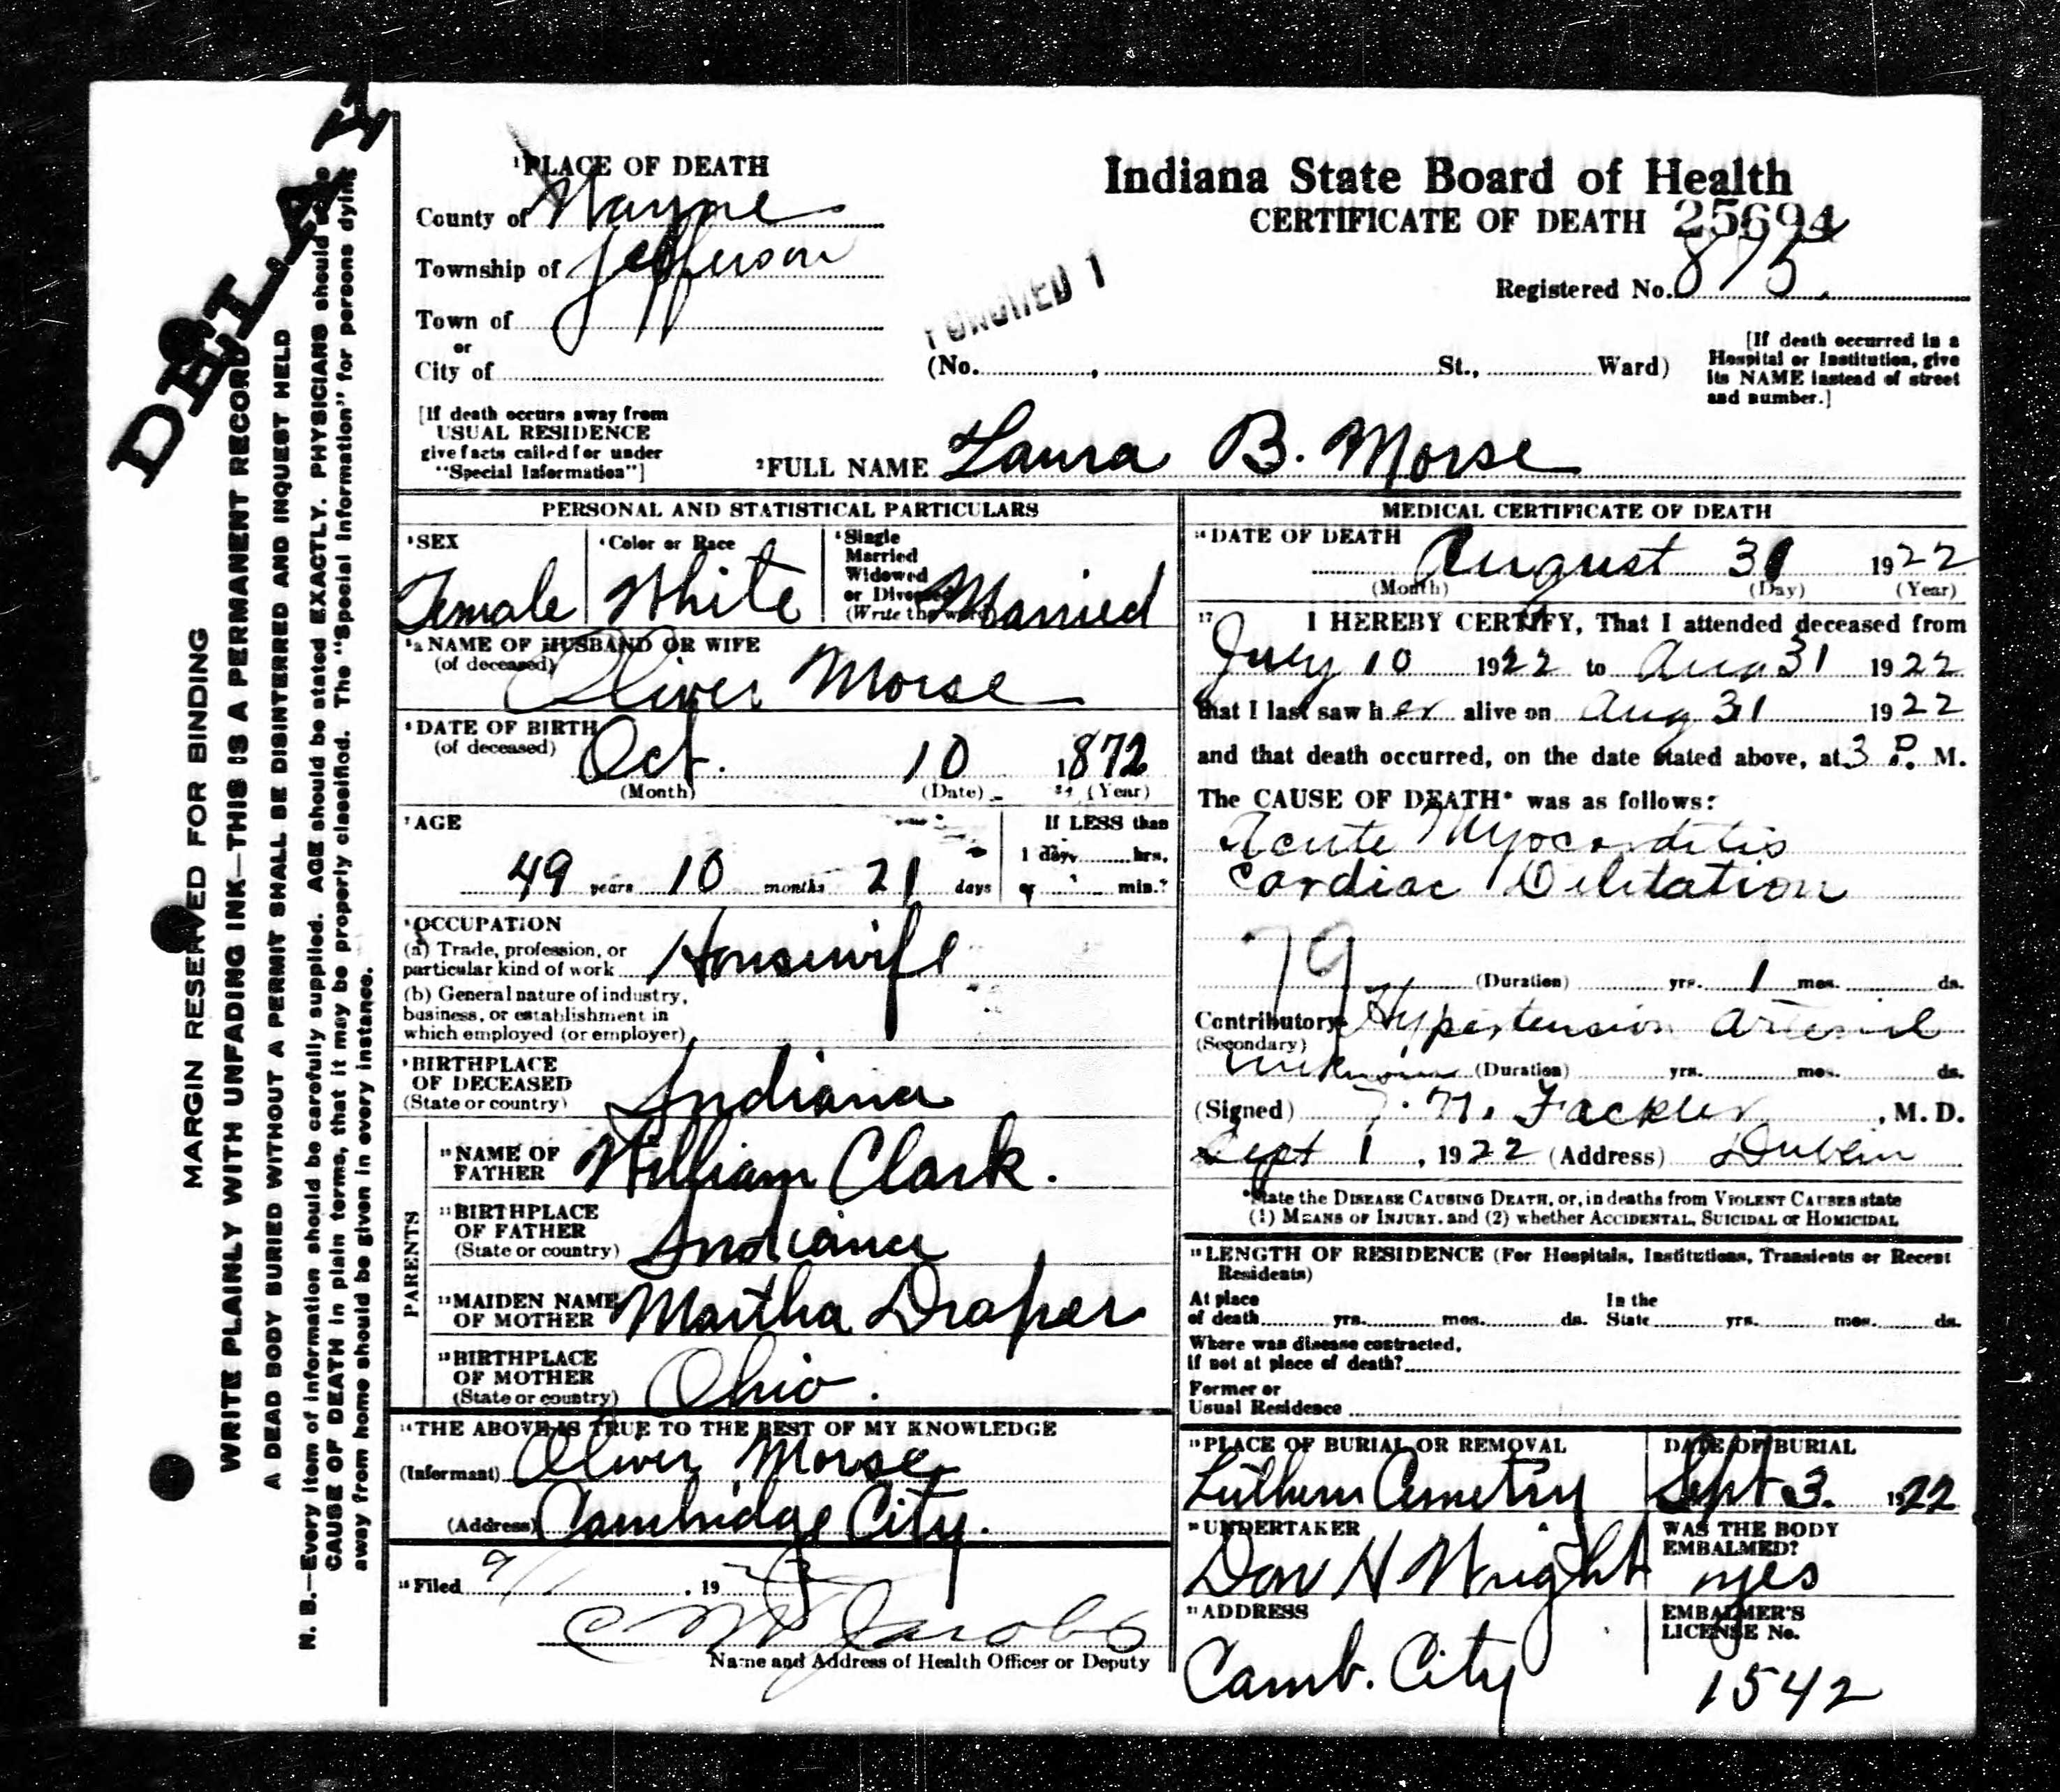 DELAY
MARGIN RESERVED FOR BINDING
WRITE PLAINLY WITH UNFADING INK—THIS IS A PERMANENT RECORD
A DEAD BODY BURIED WITHOUT A PERMIT SHALL BE DISINTERRED AND INQUEST HELD
N. B.—Every item of information should be carefully supplied. AGE should be stated EXACTLY. PHYSICIANS should
CAUSE OF DEATH in plain terms, that it may be properly classified. The "Special Information" for persons dying
away from home should be given in every instance.
1 PLACE OF DEATH
County of Wayne
Township of Jefferson
Town of
or
City of
[If death occurs away from
USUAL RESIDENCE
give facts called for under
"Special Information"]
Indiana State Board of Health
CERTIFICATE OF DEATH 25694
Registered No. 875
(No. , St., Ward)
[If death occurred in a
Hospital or Institution, give
its NAME instead of street
and number.]
2 FULL NAME Laura B. Morse
PERSONAL AND STATISTICAL PARTICULARS
3 SEX
Female
4 Color or Race
White
5 Single
Married
Widowed
or Divorced
(Write the word)
Married
5a NAME OF HUSBAND OR WIFE
(of deceased)
Oliver Morse
6 DATE OF BIRTH
(of deceased)
Oct. 10 1872
(Month) (Date) (Year)
7 AGE
49 years 10 months 21 days
If LESS than
1 day, hrs.
or min.?
8 OCCUPATION
(a) Trade, profession, or
particular kind of work Housewife
(b) General nature of industry,
business, or establishment in
which employed (or employer)
9 BIRTHPLACE
OF DECEASED
(State or country) Indiana
PARENTS
10 NAME OF
FATHER William Clark.
11 BIRTHPLACE
OF FATHER
(State or country) Indiana
12 MAIDEN NAME
OF MOTHER Martha Draper
13 BIRTHPLACE
OF MOTHER
(State or country) Ohio.
14 THE ABOVE IS TRUE TO THE BEST OF MY KNOWLEDGE
(Informant) Oliver Morse
(Address) Cambridge City.
15 Filed 9/1, 19
C M Jacobs
Name and Address of Health Officer or Deputy
MEDICAL CERTIFICATE OF DEATH
16 DATE OF DEATH
August 31 1922
(Month) (Day) (Year)
17 I HEREBY CERTIFY, That I attended deceased from
July 10 1922 to Aug 31 1922
that I last saw her alive on Aug 31 1922
and that death occurred, on the date stated above, at 3 P. M.
The CAUSE OF DEATH* was as follows:
Acute Myocarditis
Cardiac Dilitation
79
(Duration) yrs. 1 mos. ds.
Contributory Hypertension Arterial
(Secondary)
Unknown (Duration) yrs. mos. ds.
(Signed) Fackler, M. D.
Sept 1, 1922 (Address) Dublin
*State the DISEASE CAUSING DEATH, or, in deaths from VIOLENT CAUSES state
(1) MEANS OF INJURY, and (2) whether ACCIDENTAL, SUICIDAL or HOMICIDAL
18 LENGTH OF RESIDENCE (For Hospitals, Institutions, Transients or Recent
Residents)
At place In the
of death yrs. mos. ds. State yrs. mos. ds.
Where was disease contracted,
if not at place of death?
Former or
Usual Residence
19 PLACE OF BURIAL OR REMOVAL
Luthern Cemetry
DATE OF BURIAL
Sept 3. 1922
20 UNDERTAKER
Don H Wright
WAS THE BODY
EMBALMED?
yes
21 ADDRESS
Camb. City
EMBALMER'S
LICENSE No.
1542